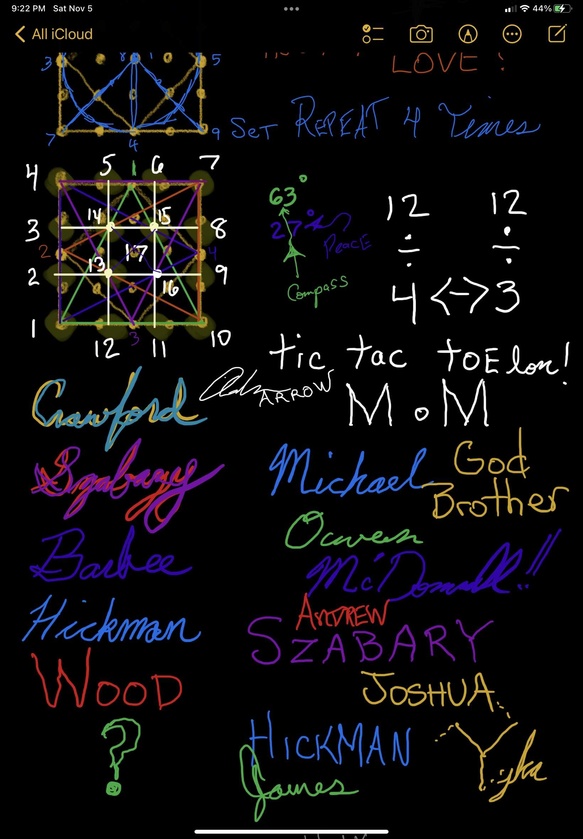 9:22 PM Sat Nov 5
44%
All iCloud
LOVE!
3 5
7 4 9
Set REPEAT 4 Times
4 5 1 6 7
3 14 15 8
2 17 4
2 13 16 9
1 12 3 11 10
63°
27°
PEACE
Compass
12 12
÷ ÷
4 <-> 3
tic tac toE lon!
ARROW
M.M
Crawford
Szabary
Barbee
Hickman
WOOD
?
Michael
God
Brother
Owen
McDonall!!
ANDREW
SZABARY
JOSHUA
HICKMAN
James